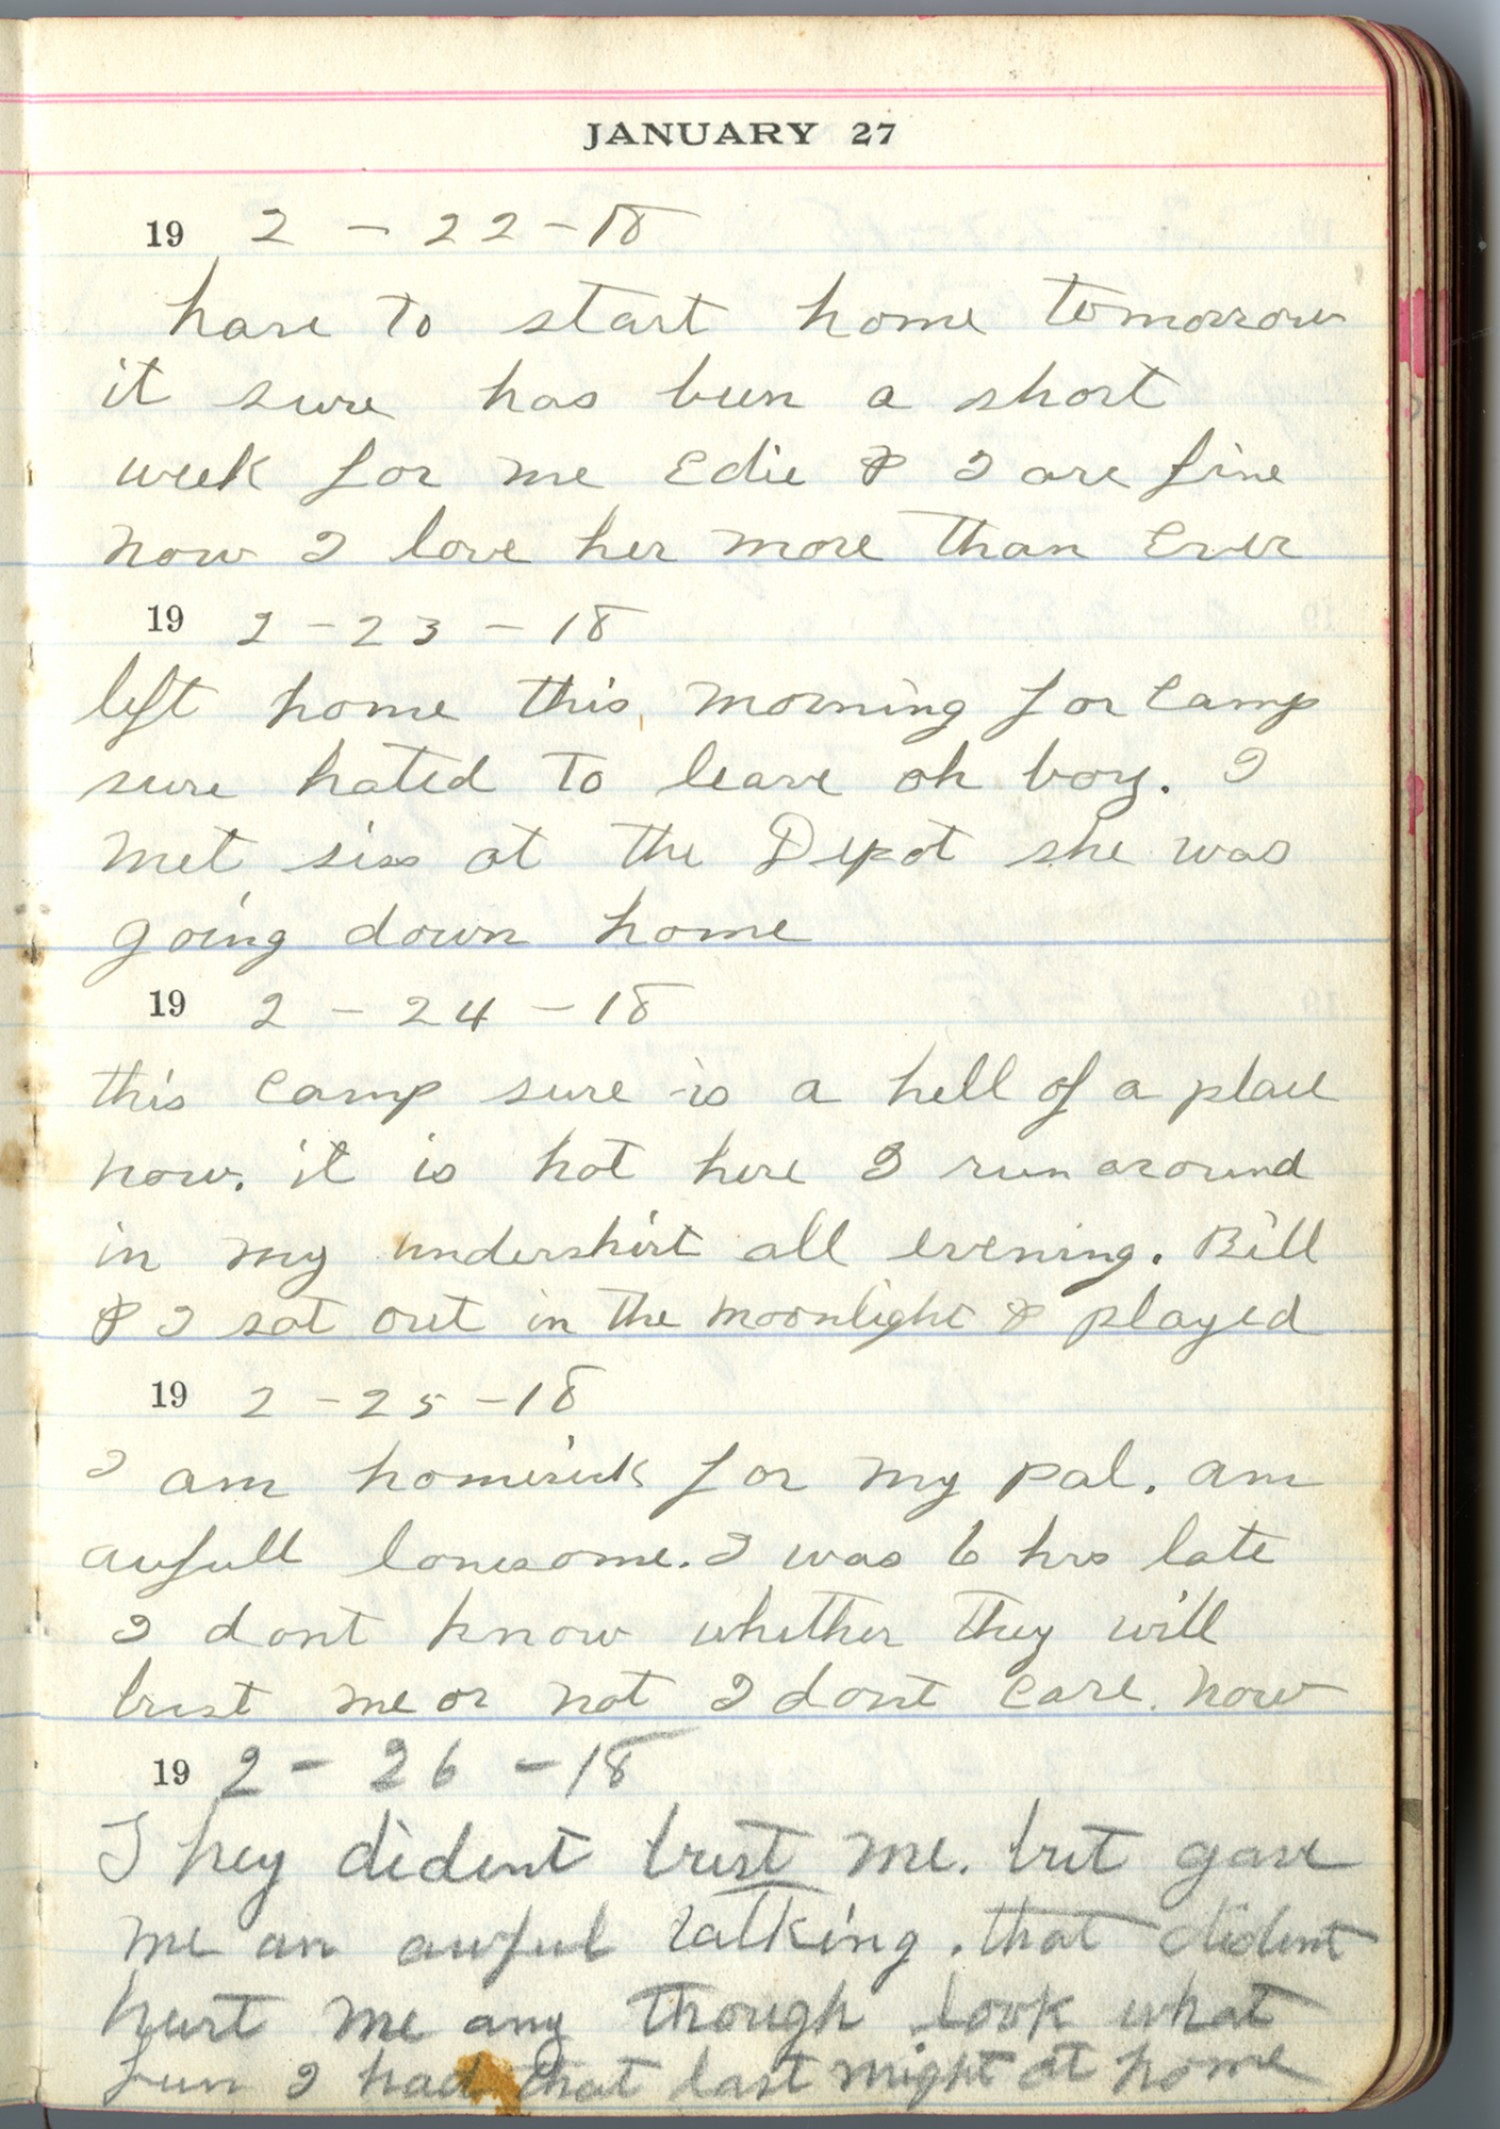 JANUARY 27
19 2 - 22 - 18
have to start home tomorrow
it sure has been a short
week for me Edie & I are fine
now I love her more than Ever
19 2 - 23 - 18
left home this morning for Camp
sure hated to leave oh boy. I
met siss at the Depot she was
going down home
19 2 - 24 - 18
this Camp sure is a hell of a place
now. it is hot here I run around
in my undershirt all evening. Bill
& I sat out in the moonlight & played
19 2 - 25 - 18
I am homesick for my pal. am
awfull lonesome. I was 6 hrs late
I dont know whether they will
bust me or not I dont care. now
19 2 - 26 - 18
They dident bust me. but gave
me an awful talking. that dident
hurt me any though look what
fun I had that last night at home